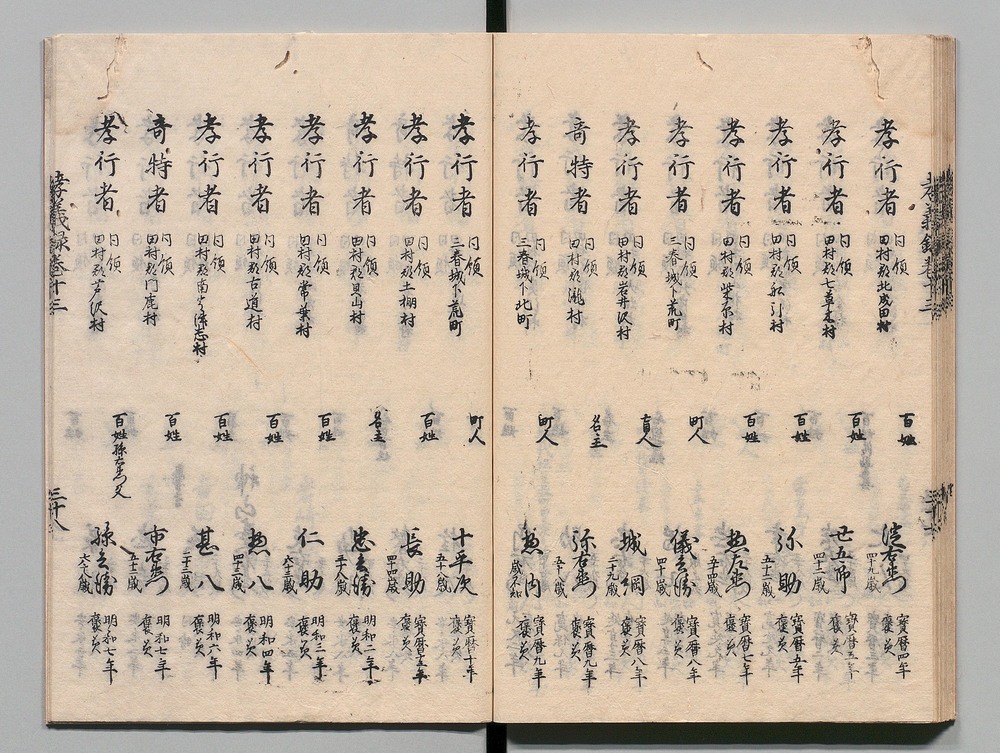 孝行者 同領 田村郡北成田村 百姓 浅右衛門 四十九歳 宝暦四年 褒美
孝行者 同領 田村郡七草木村 百姓 廿五郎 四十二歳 宝暦五年 褒美
孝行者 同領 田村郡船引村 百姓 弥助 五十二歳 宝暦五年 褒美
孝行者 同領 田村郡柴原村 百姓 五十四歳 宝暦七年 褒美
孝行者 同領 三春城下荒町 町人 儀之勝 四十歳 宝暦八年 褒美
孝行者 同領 田村郡岩井沢村 盲人 城綱 二十九歳 宝暦八年 褒美
奇特者 同領 田村郡瀧村 名主 弥右衛門 五十歳 宝暦九年 褒美
孝行者 同領 三春城下北町 町人 惣内 歳不知 宝暦九年 褒美
孝行者 同領 三春城下荒町 町人 十平次 五十歳 宝暦十年 褒美
孝行者 同領 田村郡土棚村 百姓 長助 四十四歳 宝暦 褒美
孝行者 同領 田村郡貝山村 名主 忠之勝 五十八歳 明和二年 褒美
孝行者 同領 田村郡常葉村 百姓 仁助 六十三歳 明和三年 褒美
孝行者 同領 田村郡古道村 百姓 惣八 四十三歳 明和四年 褒美
孝行者 同領 田村郡南 村 百姓 甚八 二十三歳 明和六年 褒美
奇特者 同領 田村郡門鹿村 百姓 市右衛門 五十二歳 明和七年 褒美
孝行者 同領 田村郡芦沢村 百姓孫右衛門父 孫之勝 六十八歳 明和七年 褒美
孝義録巻十三 三十八